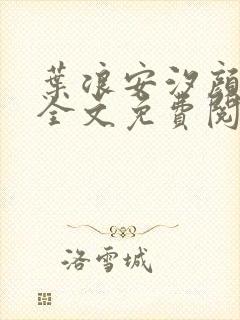 葉浪安汐顏
全文免費閱
洛雪城